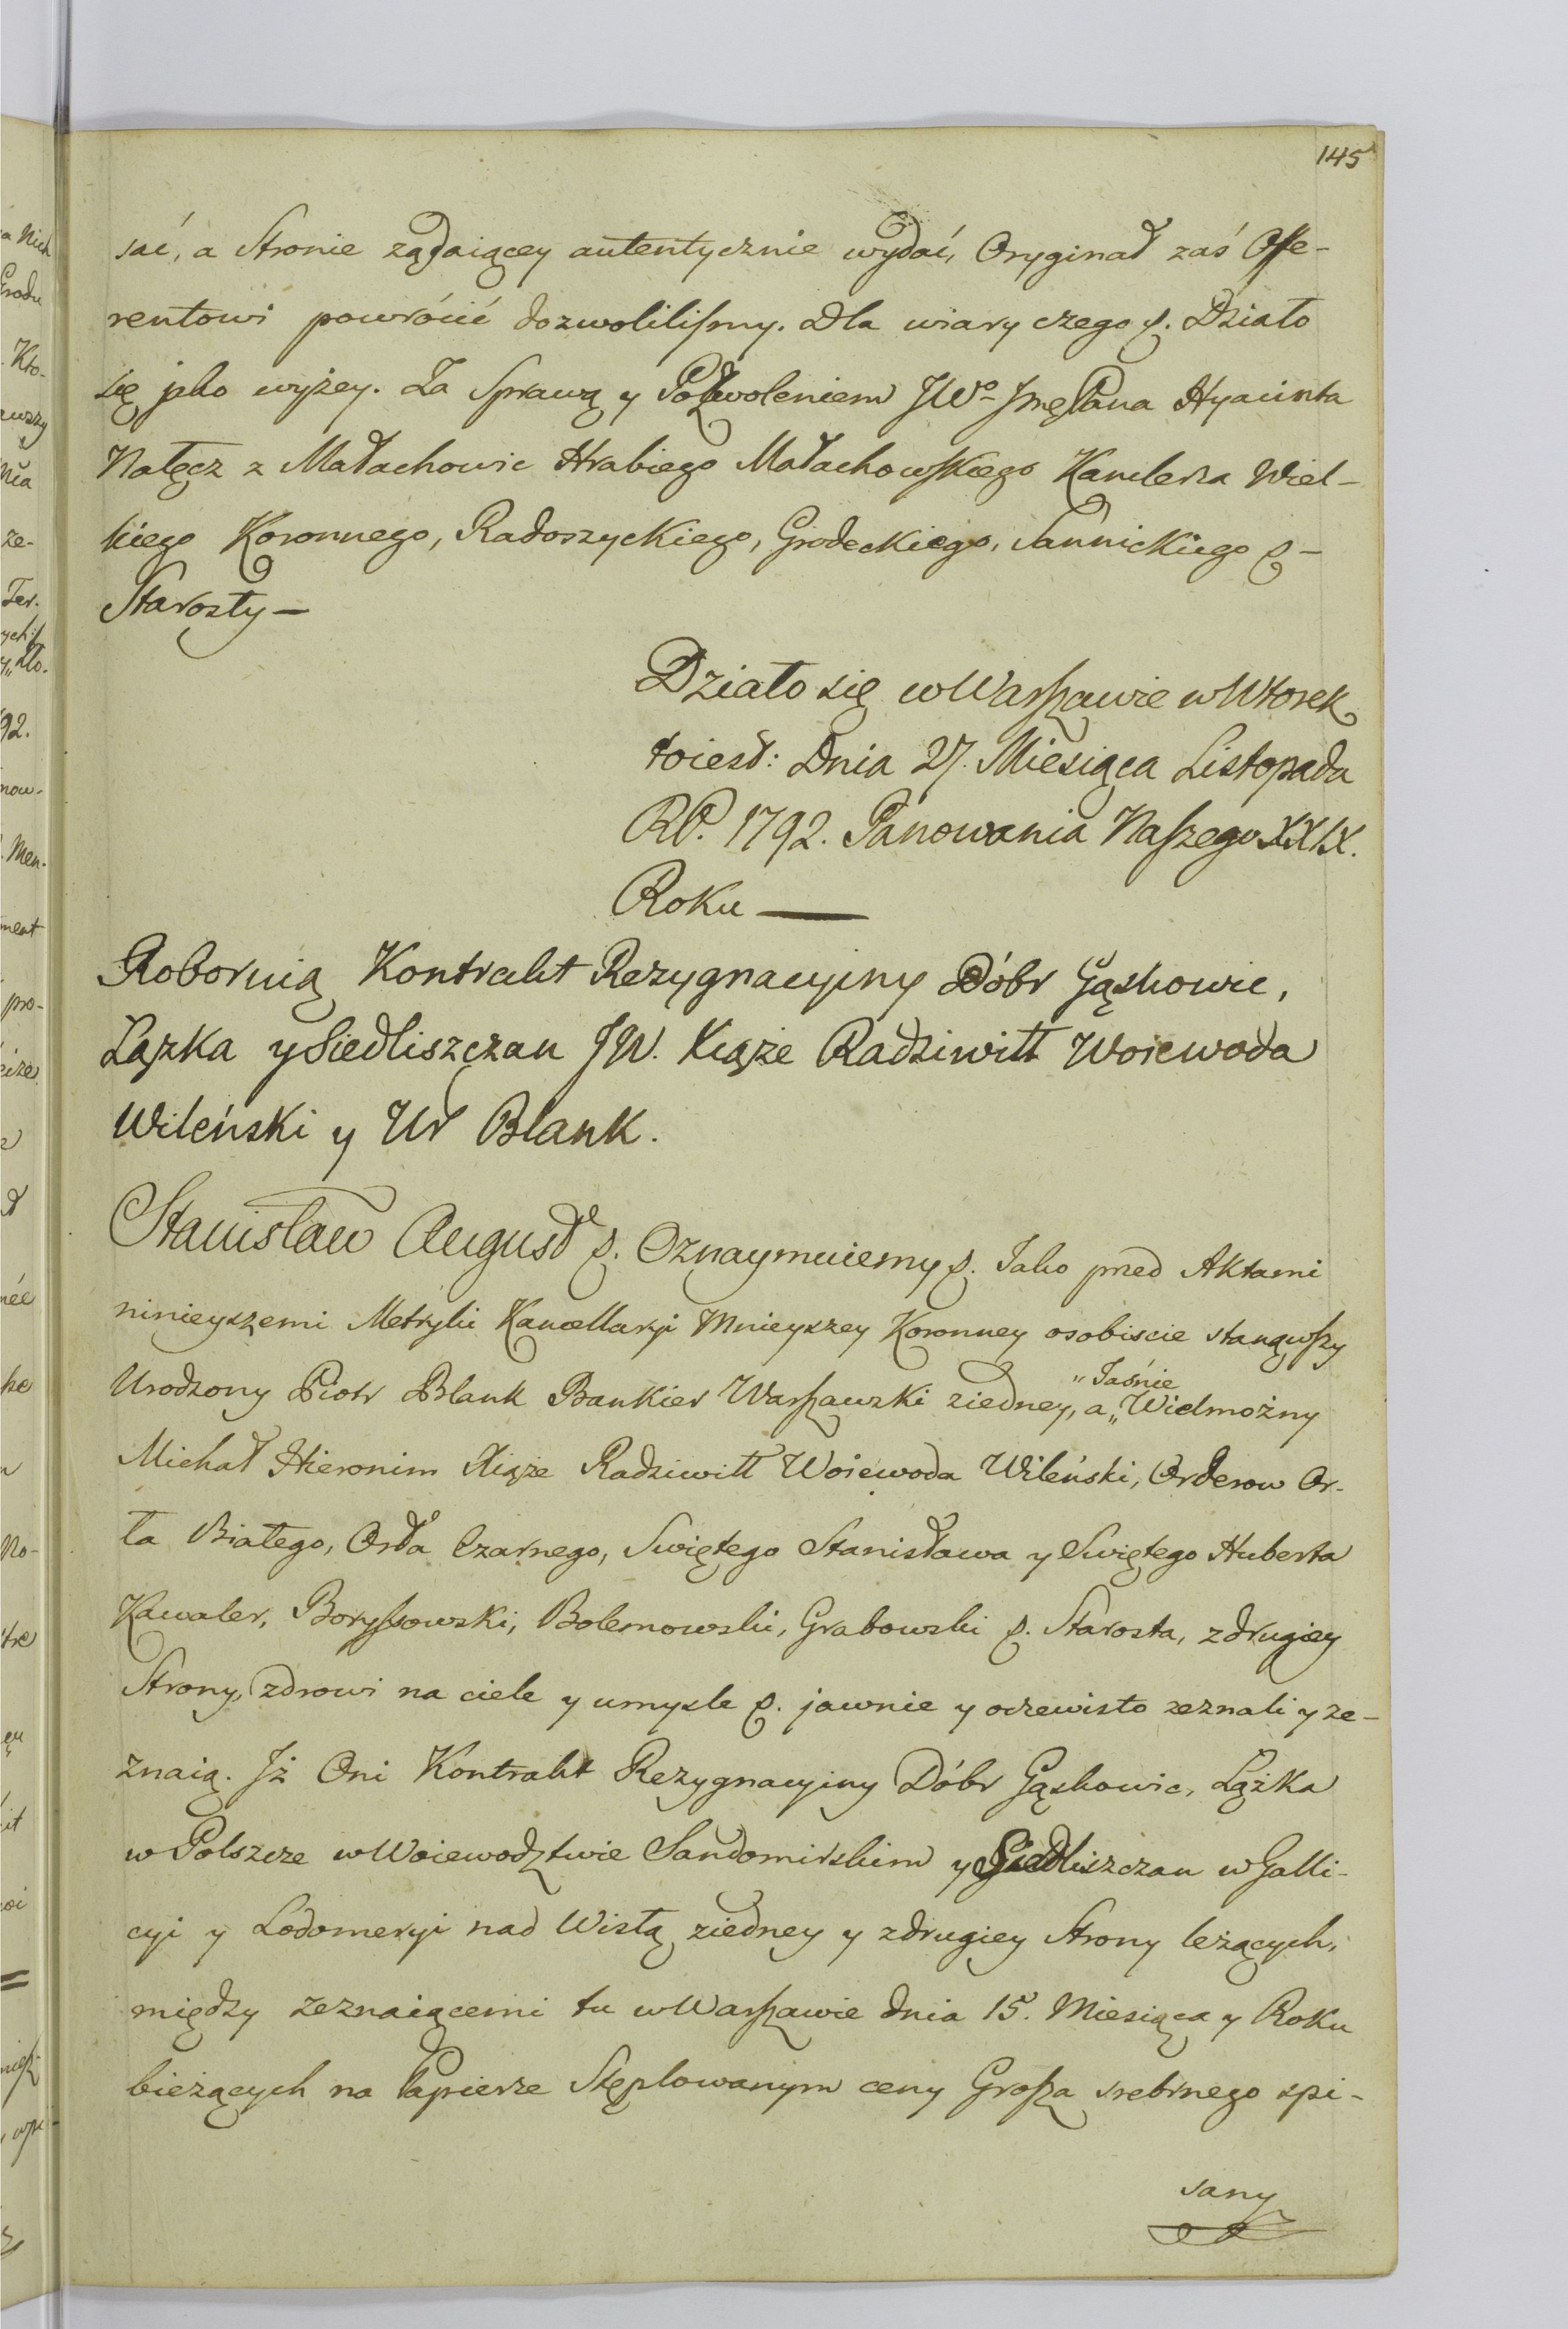 145
sać, a Stronie żądaiącey autentycznie wydać, Oryginał zaś Offe-
rentowi powrócić dozwoliliſmy. Dla wiary czego &. Działo
się jako wyżey. Za Sprawą y Pozwoleniem JWo Jmę Pana Hyacinta
Nałęcz z Małachowic Hrabiego Małachowſkiego Kanclerza Wiel-
kiego Koronnego, Radoszyckiego, Grodeckiego, Sannickiego &-
Starosty —
Działo się w Warſzawie w Wtorek
toiest: Dnia 27. Miesiąca Listopada
RP. 1792. Panowania Naſzego XXIX.
Roku —
Roboruią Kontrakt Rezygnacyiny Dóbr Gąskowic,
Lązka y Siedliszczan JW. Xiąże Radziwiłł Woiewoda
Wileński y Ur Blank.
Stanisław August &. Oznaymuiemy &. Jako pned Aktami
ninieyszemi Metryki Kancellaryi Mnieyszey Koronney osobiscie stanąwſzy
Urodzony Piotr Blank Bankier Warſzawski ziedney, a „Wielmożny
„Jaśnie
Michał Hieronim Xiąże Radziwiłł Woiewoda Wileński, Orderow Or-
ła Białego, Orła Czarnego, Swiętego Stanisława y Swiętego Huberta
Kawaler, Boryſsowski, Bolemowski, Grabowski &. Starosta, zdrugiey
Strony, zdrowi na ciele y umysle &. jawnie y oczewisto zeznali y ze-
znaią. Jż Oni Kontrakt Rezygnacyiny Dóbr Gąskowic, Lążka
w Polszcze w Woiewodztwie Sandomirskim y Siedliszczan w Galli-
cyi y Lodomeryi nad Wisłą ziedney y zdrugiey Strony leżących,
między zeznaiącemi tu w Warſzawie dnia 15. Miesiąca y Roku
bieżących na Papierze Stęplowanym ceny Groſza srebrnego spi-
sany